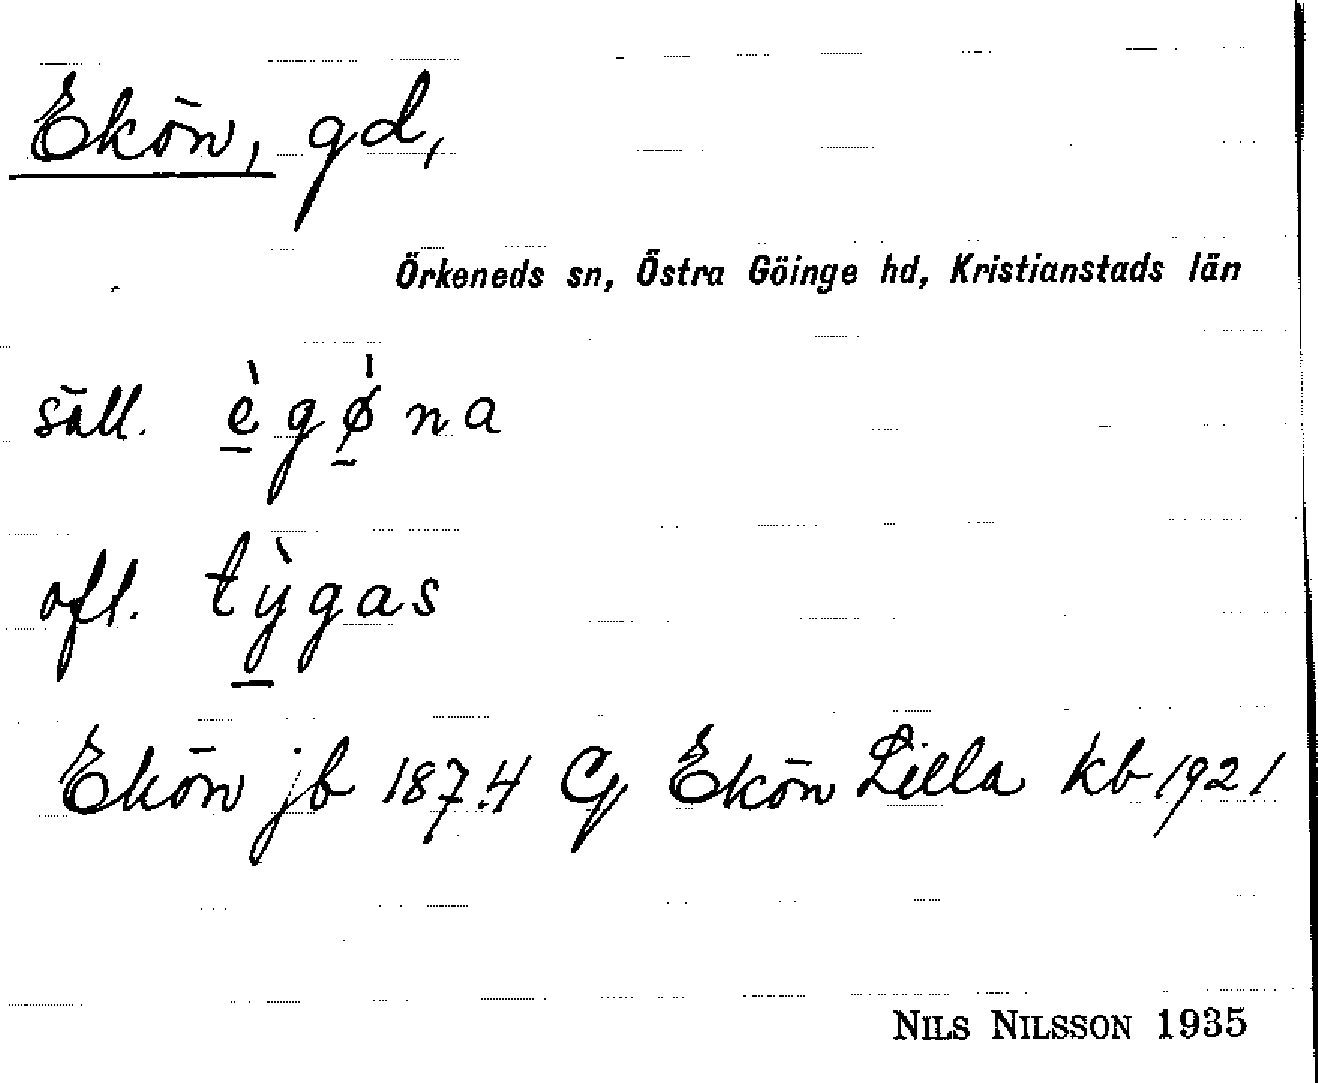 Ekön, gd,
Örkeneds sn, Östra Göinge hd, Kristianstads län
säll. è̱gǿ̱na
oft. tỳ̱gas
Ekön jb 1874 Cg Ekön Lilla kb 1921
NILS NILSSON 1935